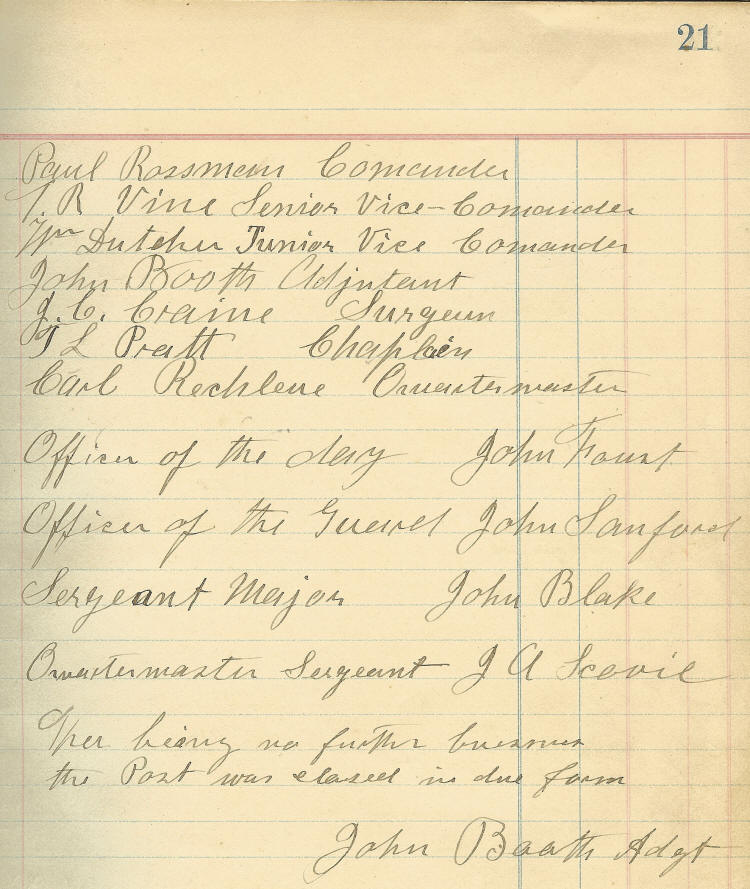 21
Paul Rossman Comander
T. R Vine Senior Vice-Comander
Wm Dutcher Junior Vice Comander
John Booth Adjutant
J. C. Craine Surgeon
T L Pratt Chaplain
Carl Rechlene Quartermaster
Officer of the day John Foust
Officer of the Guard John Sanford
Sergeant Major John Blake
Quartermaster Sergeant J A Scovil
Ther being no further buisness
the Post was closed in due form
John Booth Adgt